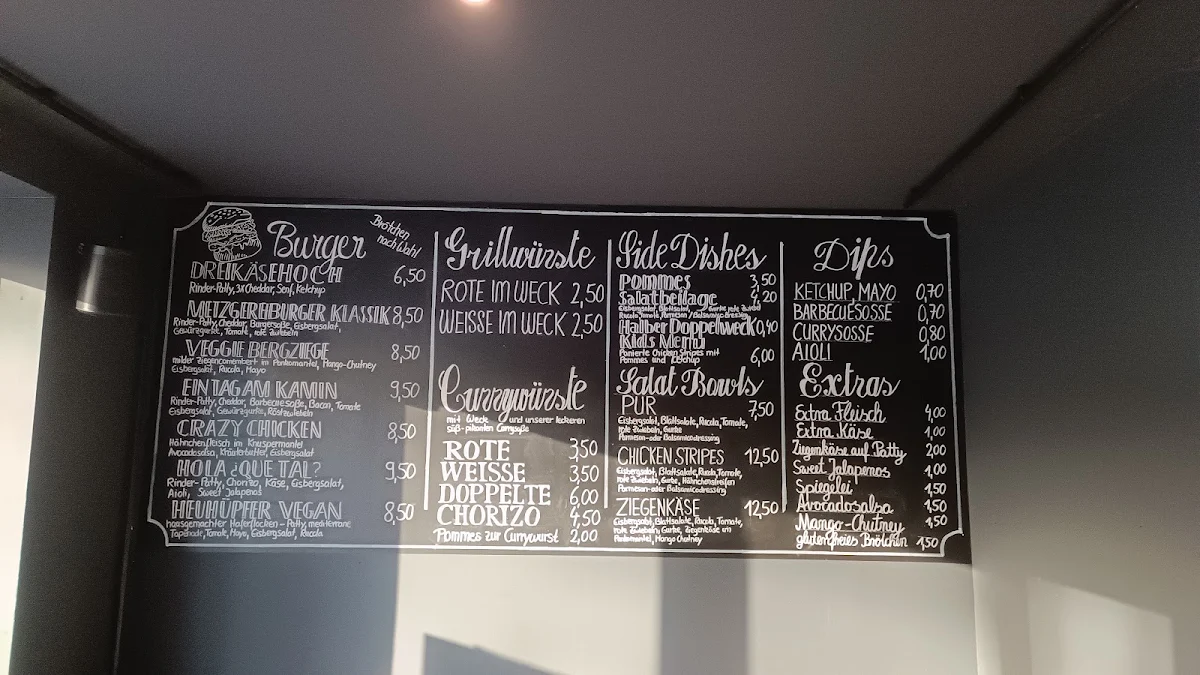 Burger
Brötchen
nach Wahl
DREIKÄSEHOCH 6,50
Rinder-Patty, 3x Cheddar, Senf, Ketchup
METZGEREIBURGER KLASSIK 8,50
Rinder-Patty, Cheddar, Burgersoße, Eisbergsalat,
Gewürzgurke, Tomate, rote Zwiebeln
VEGGIE BERGZIEGE 8,50
milder Ziegencamembert im Pankomantel, Mango-Chutney
Eisbergsalat, Rucola, Mayo
EIN TAG AM KAMIN 9,50
Rinder-Patty, Cheddar, Barbecuesoße, Bacon, Tomate
Eisbergsalat, Gewürzgurke, Röstzwiebeln
CRAZY CHICKEN 8,50
Hähnchenfleisch im Knuspermantel
Avocadosalsa, Kräuterbutter, Eisbergsalat
HOLA ¿QUE TAL? 9,50
Rinder-Patty, Chorizo, Käse, Eisbergsalat,
Aioli, Sweet Jalapenos
HEUHÜPFER VEGAN 8,50
hausgemachter Haferflocken-Patty, mediterrane
Tapenade, Tomate, Mayo, Eisbergsalat, Rucola
Grillwürste
ROTE IM WECK 2,50
WEISSE IM WECK 2,50
Currywürste
mit Weck und unserer leckeren
süß-pikanten Currysoße
ROTE 3,50
WEISSE 3,50
DOPPELTE 6,00
CHORIZO 4,50
Pommes zur Currywurst 2,00
Side Dishes
Pommes 3,50
Salatbeilage 4,20
Eisbergsalat, Blattsalat, Gurke, rote Zwiebel
Rucola, Tomate, Parmesan-/Balsamico-Dressing
Halber Doppelweck 0,40
Kids Menü
Panierte Chicken Stripes mit
Pommes und Ketchup 6,00
Salat Bowls
PUR 7,50
Eisbergsalat, Blattsalate, Rucola, Tomate,
rote Zwiebeln, Gurke
Parmesan- oder Balsamicodressing
CHICKEN STRIPES 12,50
Eisbergsalat, Blattsalate, Rucola, Tomate,
rote Zwiebeln, Gurke, Hähnchenstreifen
Parmesan- oder Balsamicodressing
ZIEGENKÄSE 12,50
Eisbergsalat, Blattsalate, Rucola, Tomate,
rote Zwiebeln, Gurke, Ziegenkäse im
Pankomantel, Mango Chutney
Dips
KETCHUP, MAYO 0,70
BARBECUESOSSE 0,70
CURRYSOSSE 0,80
AIOLI 1,00
Extras
Extra Fleisch 4,00
Extra Käse 1,00
Ziegenkäse auf Patty 2,00
Sweet Jalapenos 1,00
Spiegelei 1,50
Avocadosalsa 1,50
Mango-Chutney 1,50
glutenfreies Brötchen 1,50